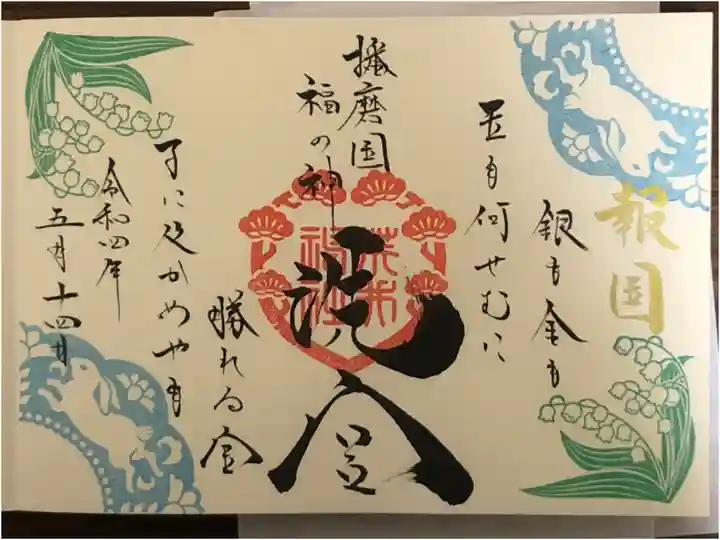 報国
銀も金も
玉も何せむに
播磨国
福の神
洗金
勝れる宝
子に及かめやも
令和四年
五月十四日